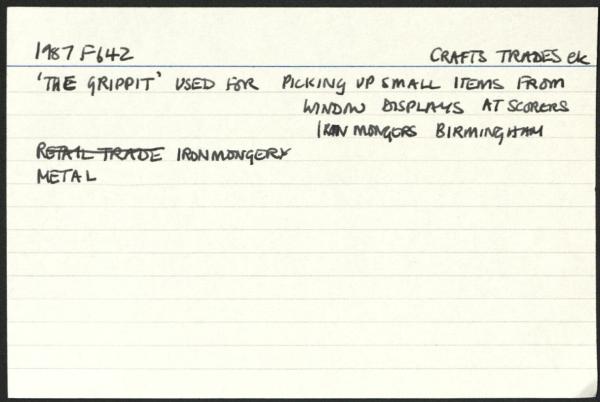 1987 F642 CRAFTS TRADES etc
'THE GRIPPIT' USED FOR PICKING UP SMALL ITEMS FROM
WINDOW DISPLAYS AT SCORERS
IRON MONGERS BIRMINGHAM
RETAIL TRADE IRONMONGERY
METAL